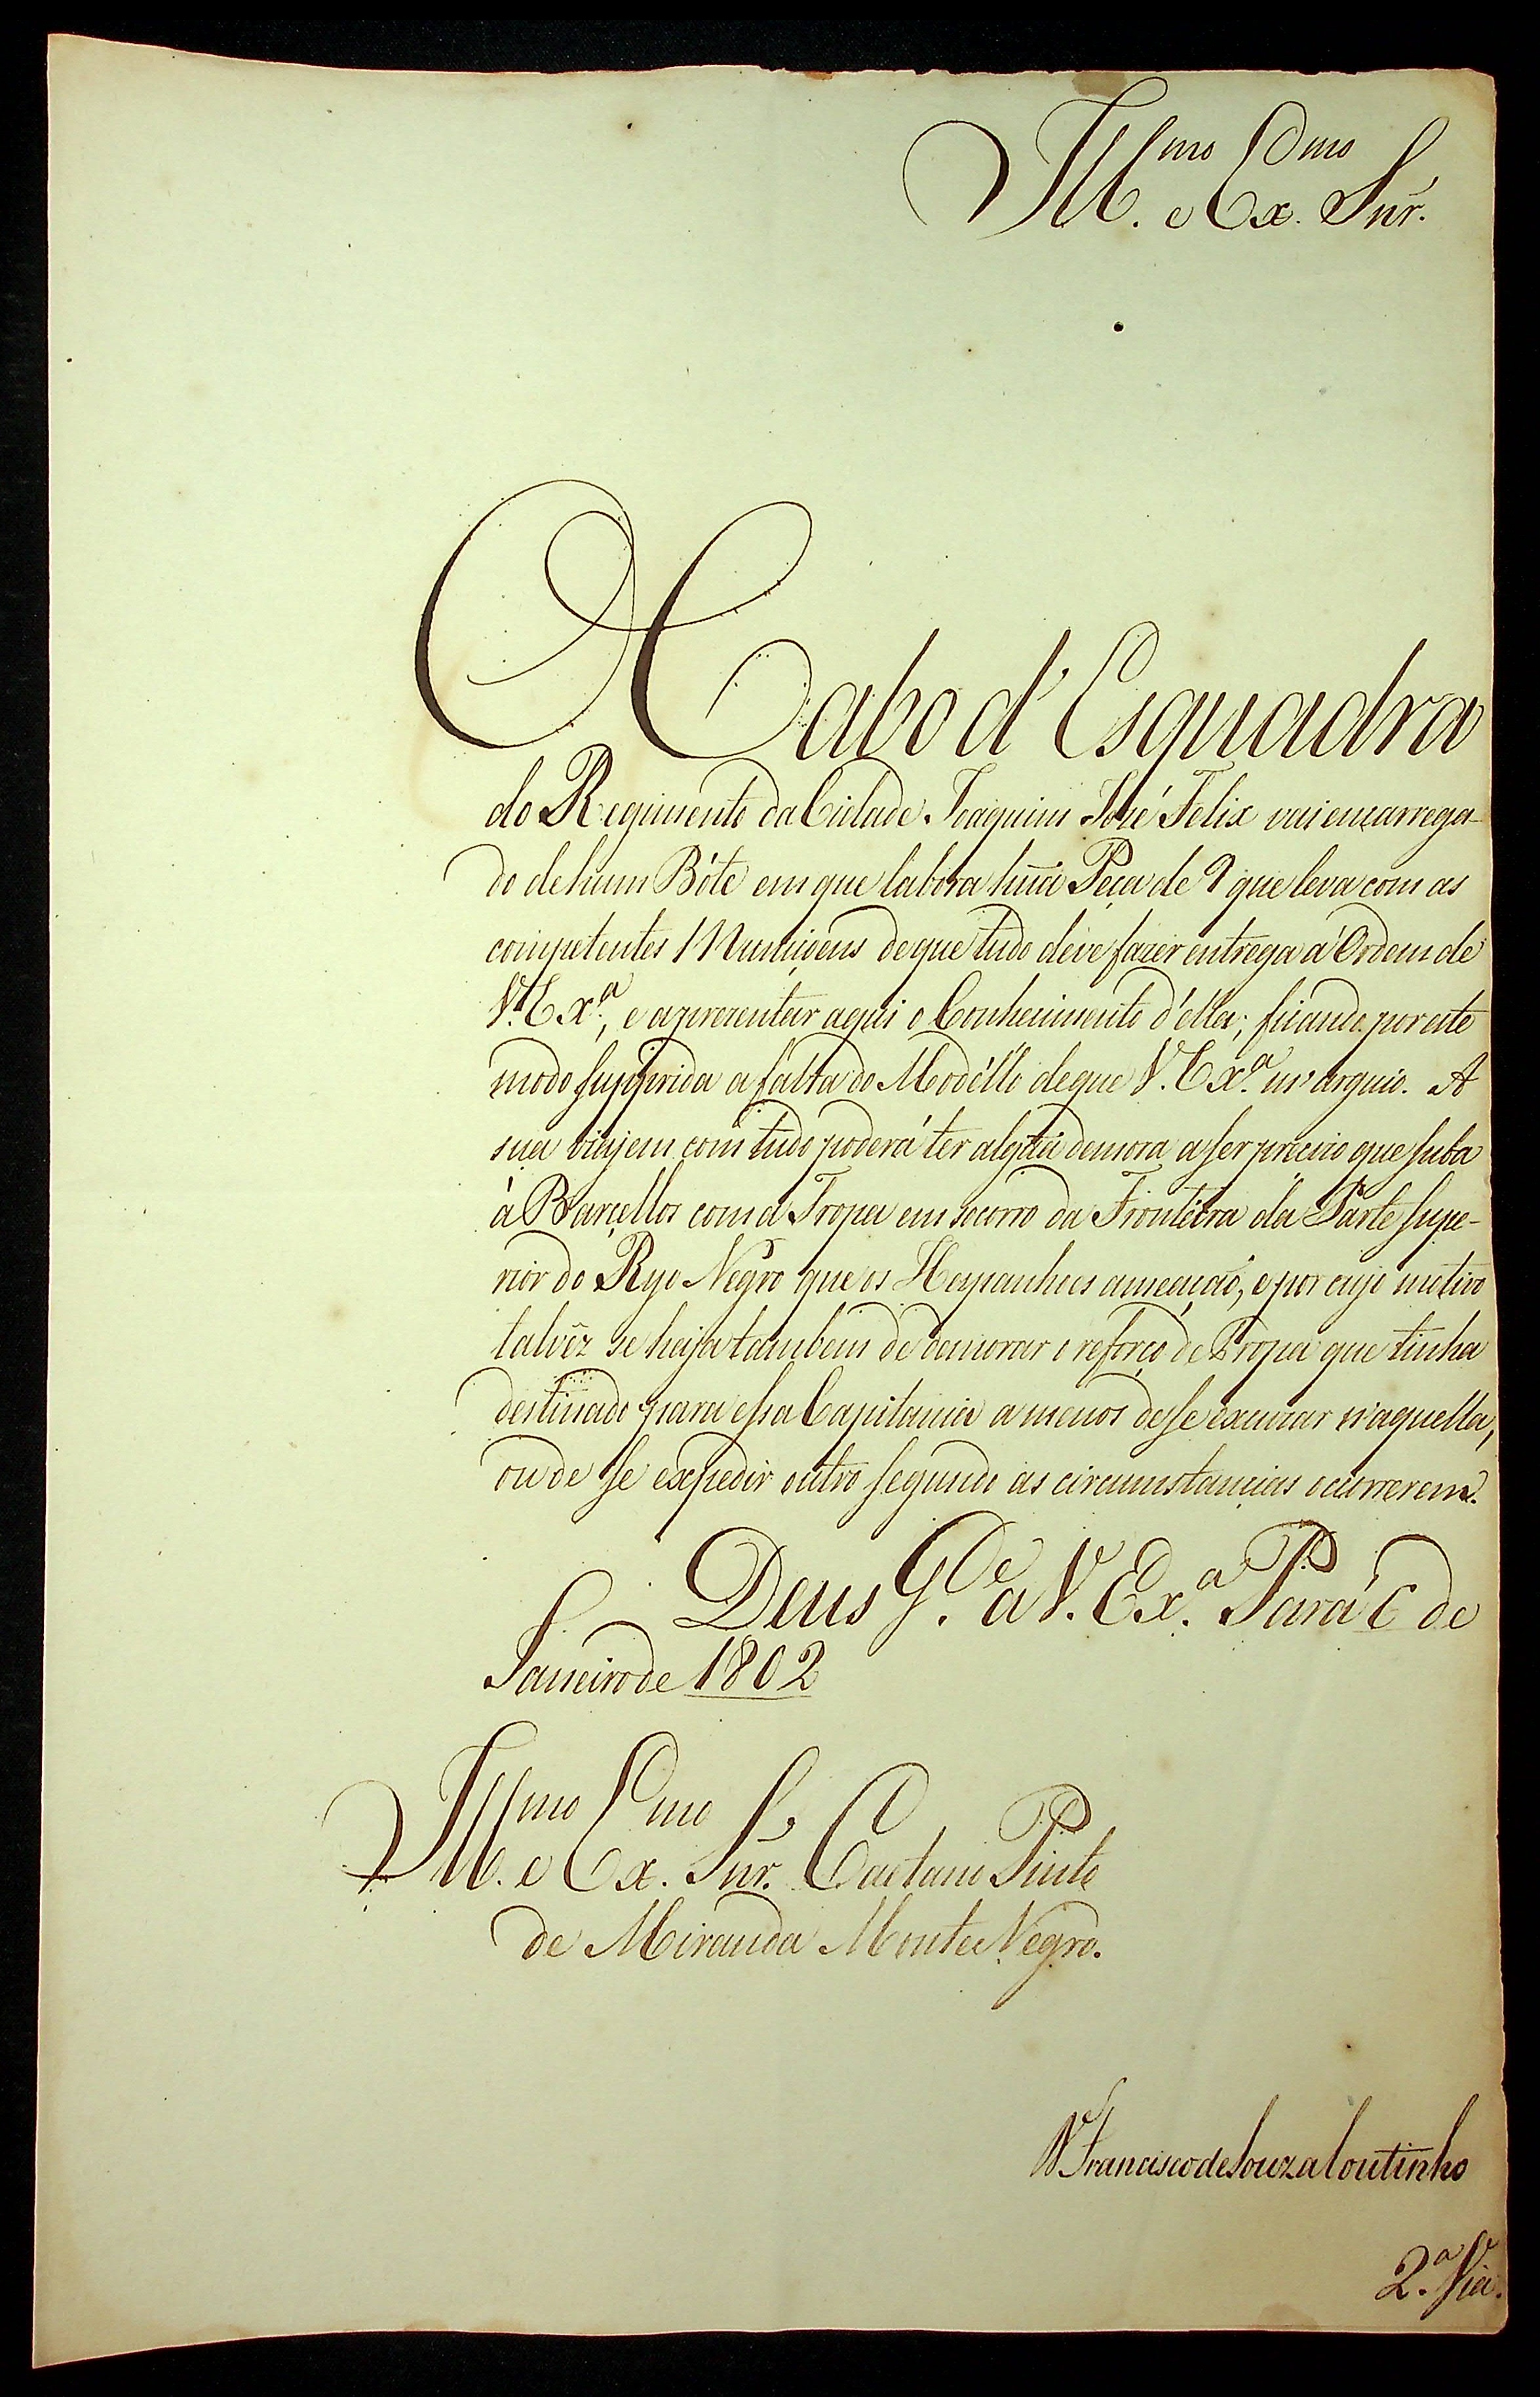 Ill.mo e Ex.mo Snr.
O Cabo d'Esquadra
do Regimento da Cidade Joaquim José Felix vai encarrega-
do de hum Bóte em que labóra hũa Peça de 9 que leva com as
competentes Muniçoens de que tudo deve fazer entrega á Ordem de
V. Ex.a, e aprezentar aqui o Conhecimento d'ella; ficando por este
modo supprida a falta do Modéllo de que V. Ex.a m'arguio. A
sua viajem com tudo poderá ter algũa demora a ser precizo que suba
á Barcellos com a Tropa em socorro da Fronteira da Parte supe-
rior do Ryo Negro que os Hespanhoes ameação, e por cujo motivo
talvêz se haja tambem de demorar o reforço de Tropa que tinha
destinado para essa Capitania a menos de se excuzar n'aquella,
ou de se expedir outro segundo as circumstancias ocurrerem.
Deus G.de a V. Ex.a Pará de
Janeiro de 1802
Ill.mo e Ex.mo Snr. Caetano Pinto
de Miranda Monte Negro.
Francisco de Souza Coutinho
2.a Via.